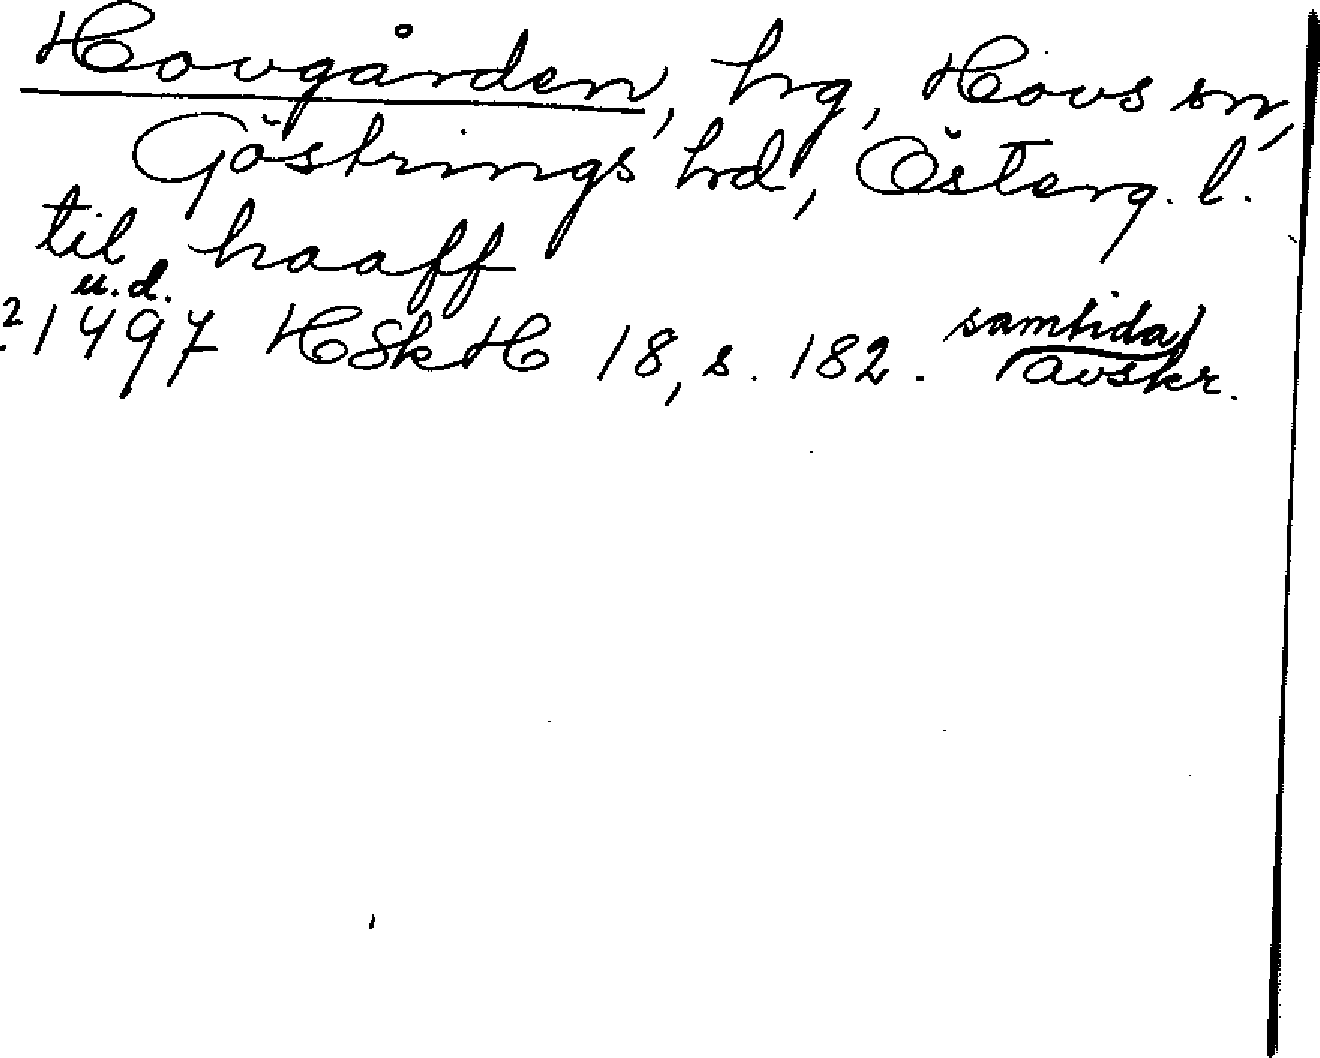 Hovgården, hrg, Hovs sn,
Göstrings hrd, Österg. l.
til haaff
u.d.
? 1497 HSkH 18, s. 182. samtida
avskr.